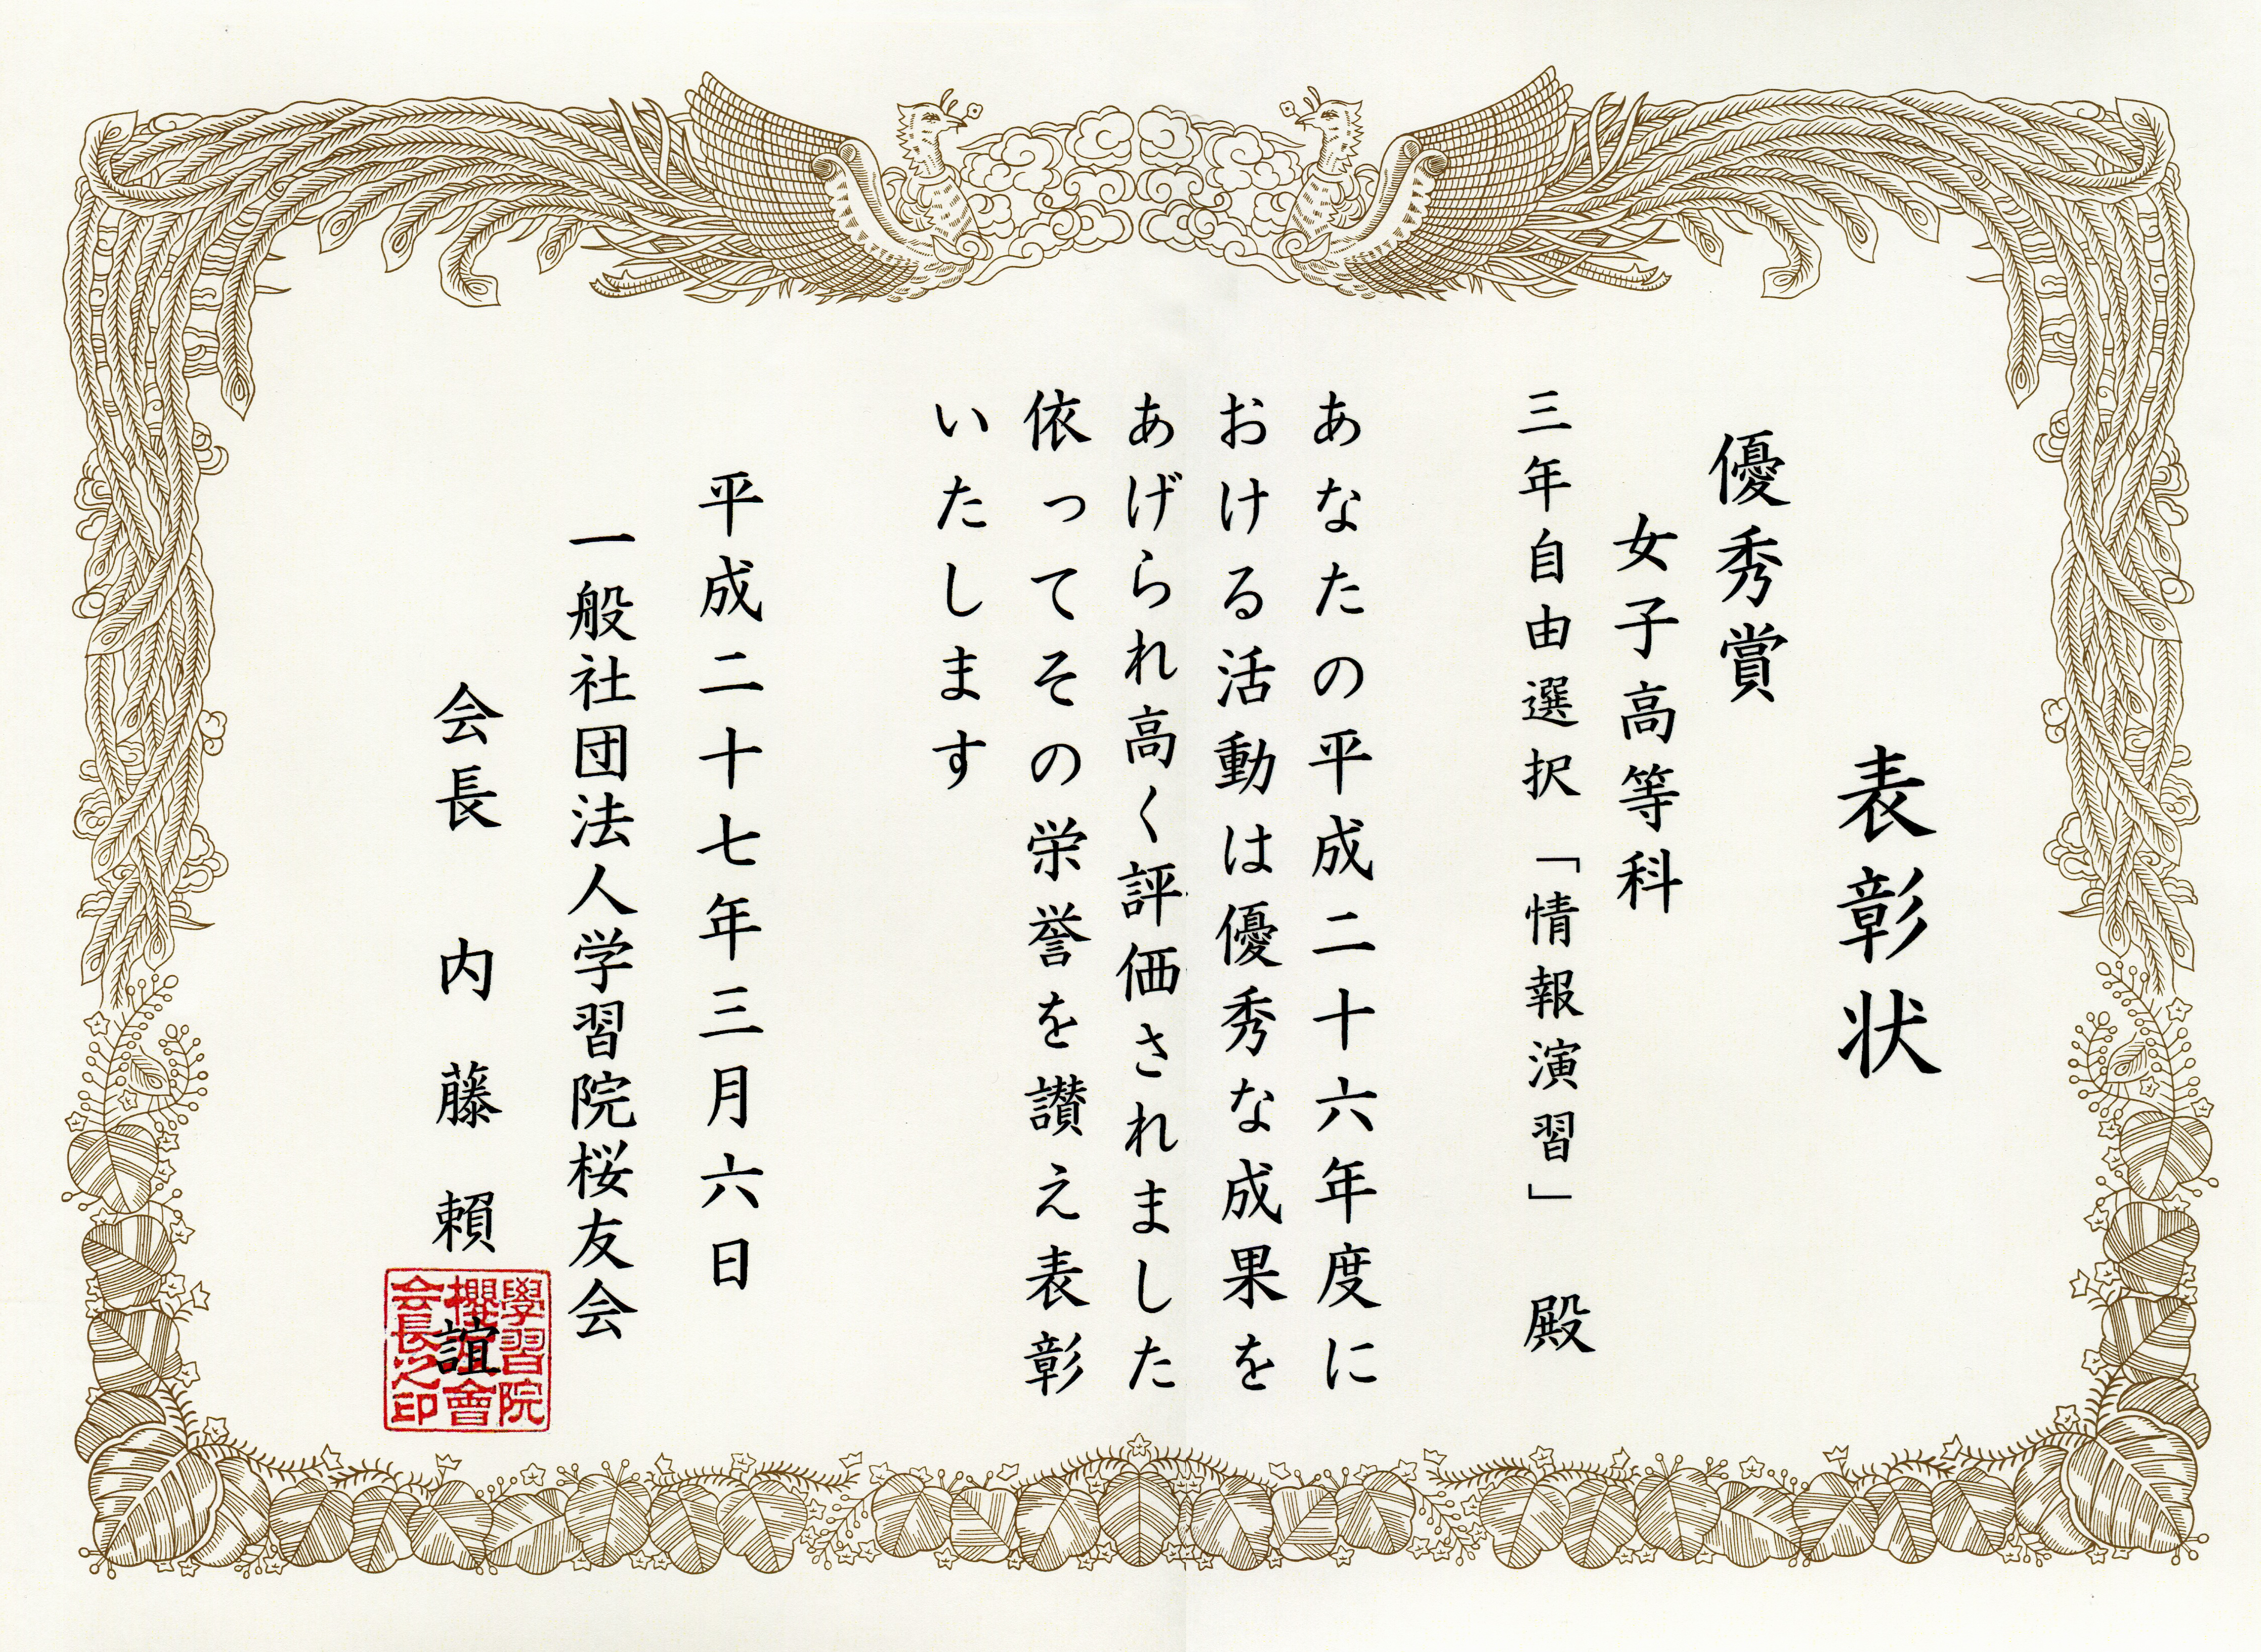 表彰状
優秀賞
女子高等科
三年自由選択「情報演習」 殿
あなたの平成二十六年度に
おける活動は優秀な成果を
あげられ高く評価されました
依ってその栄誉を讃え表彰
いたします
平成二十七年三月六日
一般社団法人学習院桜友会
会長 内藤頼誼
學習院
櫻友會
会長之印